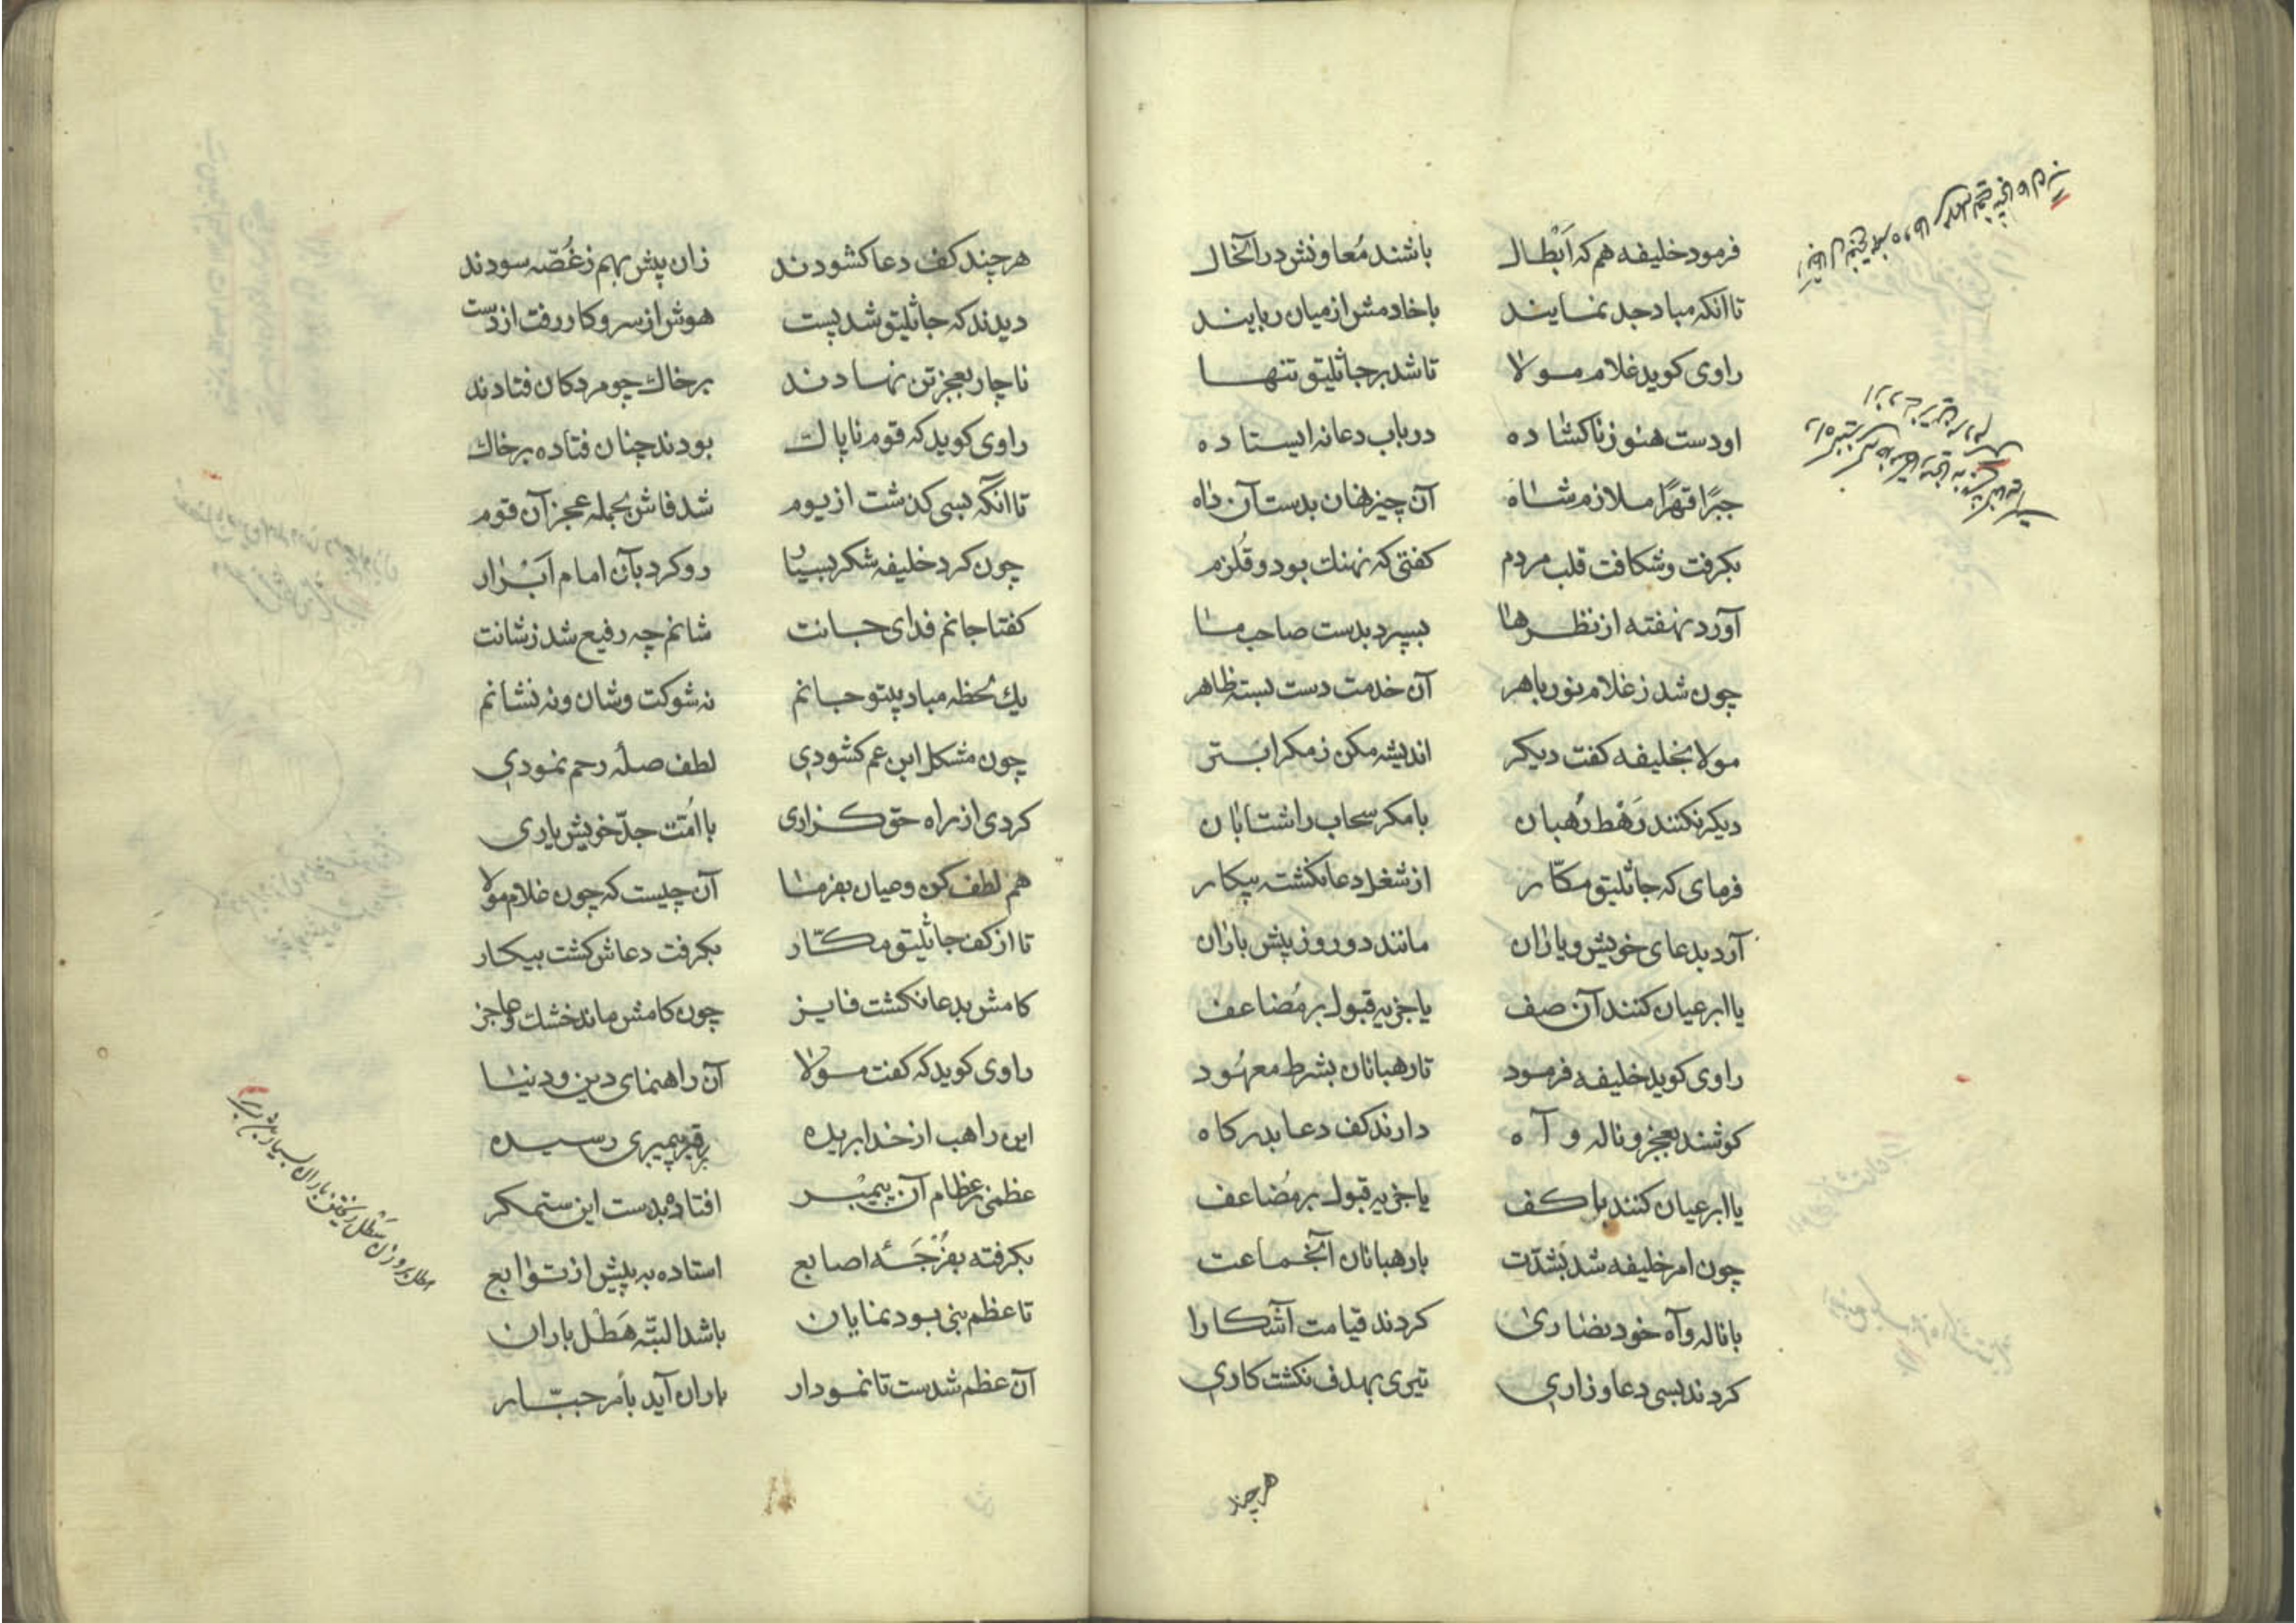 فرمود خلیفه هم که اَبْطال باشند مُعاونش در آنحال
تا انکه مباد جد نمایند با خادمش از میان ربایند
راوی کوید غلام مولا تا شد بر جاثلیق تنها
او دست هنوز ناکشاده در باب دعا نه ایستاده
جبرًا قهرًا ملازم شاه آن چیز نهان بدست آن داه
بکرفت و شکافت قلب مردم کفتی که نهنك بود و قُلزم
آورد نهفته از نظرها بسپرد بدست صاحب ما
چون شد ز غلام نور باهر آن خدمت دست بسته ظاهر
مولا بخلیفه کفت دیکر اندیشه مکن ز مکر ابتر
دیکر نکنند رَهْط رُهبان با مکر سحاب را شتابان
فرمای که جاثلیق مکّار از شغل دعا نکشته بیکار
آرد بدعای خویش و یاران مانند دو روز پیش باران
یا ابر عیان کنند آن صف یا جزیه قبول بر مُضاعف
راوی کوید خلیفه فرمود تا رهبانان بشرط معهُود
کوشند بعجز و ناله و آه دارند کف دعا بدرکاه
یا ابر عیان کنند با کف یا جزیه قبول بر مُضاعف
چون امر خلیفه شد بشدّت با رهبانان آنجماعت
با ناله و آه خود نصاری کردند قیامت آشکارا
کردند بسی دعا و زاری تیری بهدف نکشت کاری
هر چند
هر چند کف دعا کشودند زان پیش بهم ز غُصّه سودند
دیدند که جاثلیق شد پست هوش از سر و کار رفت از دست
ناچار بعجز تن نهادند بر خاك چو مردکان فتادند
راوی کوید که قوم ناپاك بودند چنان فتاده بر خاك
تا انکه بسی کذشت از یوم شد فاش بجمله عجز آن قوم
چون کرد خلیفه شکر بسیار رو کرد بآن امام اَبْرار
کفتا جانم فدای جانت شانم چه رفیع شد ز شانت
یك لحظه مباد بیتو جانم نه شوکت و شان و نه نشانم
چون مشکل ابن عم کشودی لطف صلهٔ رحم نمودی
کردی از راه حق کزاری با اُمّت جدّ خویش یاری
هم لطف کن و عیان بفرما آن چیست که چون غلام مولا
تا از کف جاثلیق مکّار بکرفت دعاش کشت بیکار
کامش بدعا نکشت فایز چون کامش ماند خشك و عاجز
راوی کوید که کفت مولا آن راهنمای دین و دنیا
این راهب از خدا بریده بر قبر پیمبری رسیده
عظمی ز عظام آن پیمبر افتاده بدست این ستمکر
بکرفته بفُرْجَهٔ اصابع استاده به پیش از توابع
تا عظم نبی بود نمایان باشد البتّه هَطْل باران
آن عظم شدست تا نمودار باران آید بأمر جبّار
هطل بر وزن سَطْل ریختن باران بسیار